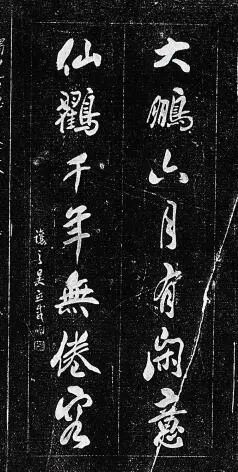 大鵬六月有閑意
仙鶴千年無倦容